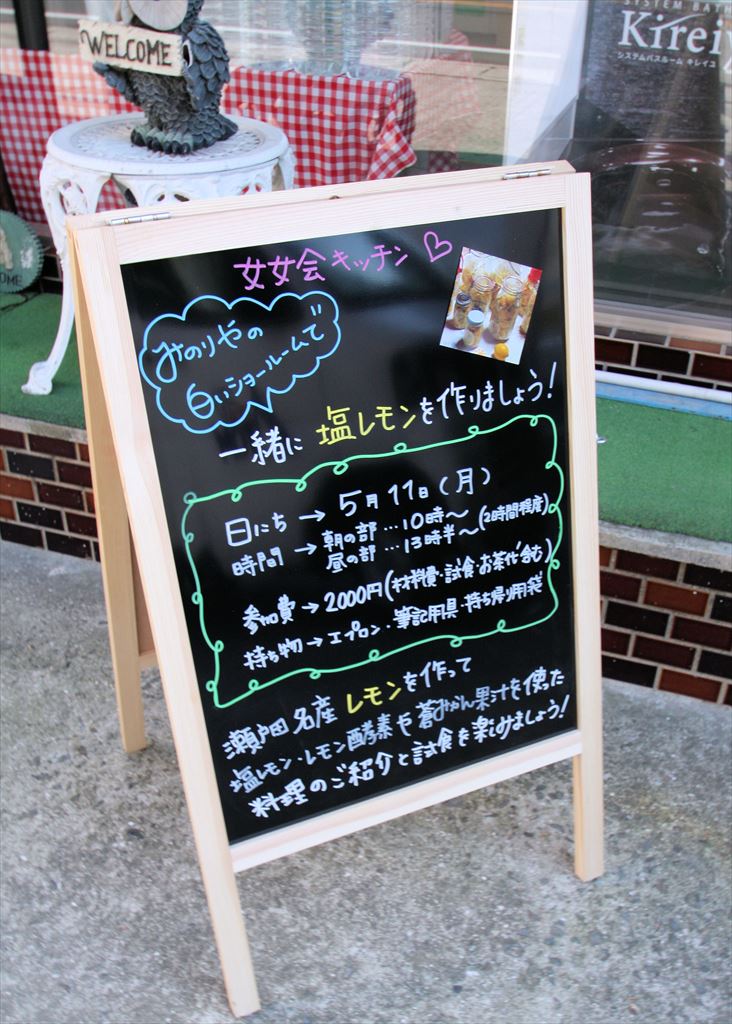 WELCOME
SYSTEM BATH
Kirei
システムバスルーム キレイユ
OME
女女会キッチン♡
みのりやの
白いショールームで
一緒に 塩レモンを作りましょう!
日にち → 5月11日(月)
時間 → 朝の部…10時～(2時間程度)
昼の部…13時半～
参加費 → 2000円(材料費・試食・お茶代含む)
持ち物 → エプロン・筆記用具・持ち帰り用袋
瀬戸田名産 レモンを作って
塩レモン・レモン酵素や蒼みかん果汁を使った
料理のご紹介と試食を楽しみましょう!